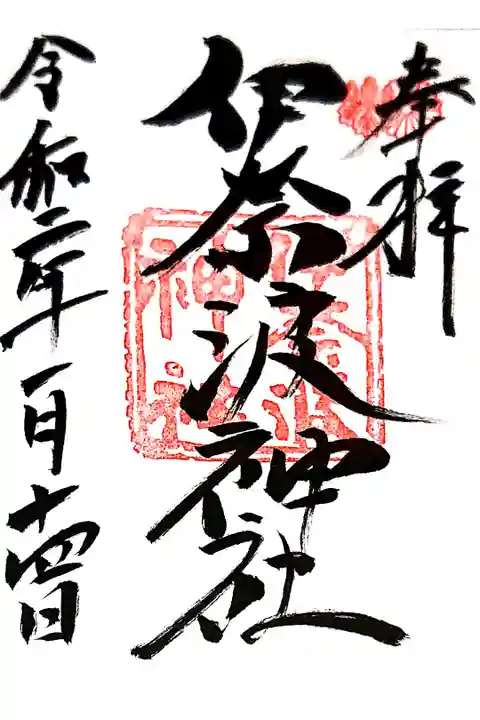 奉拝
伊奈波神社
令和二年一月十四日